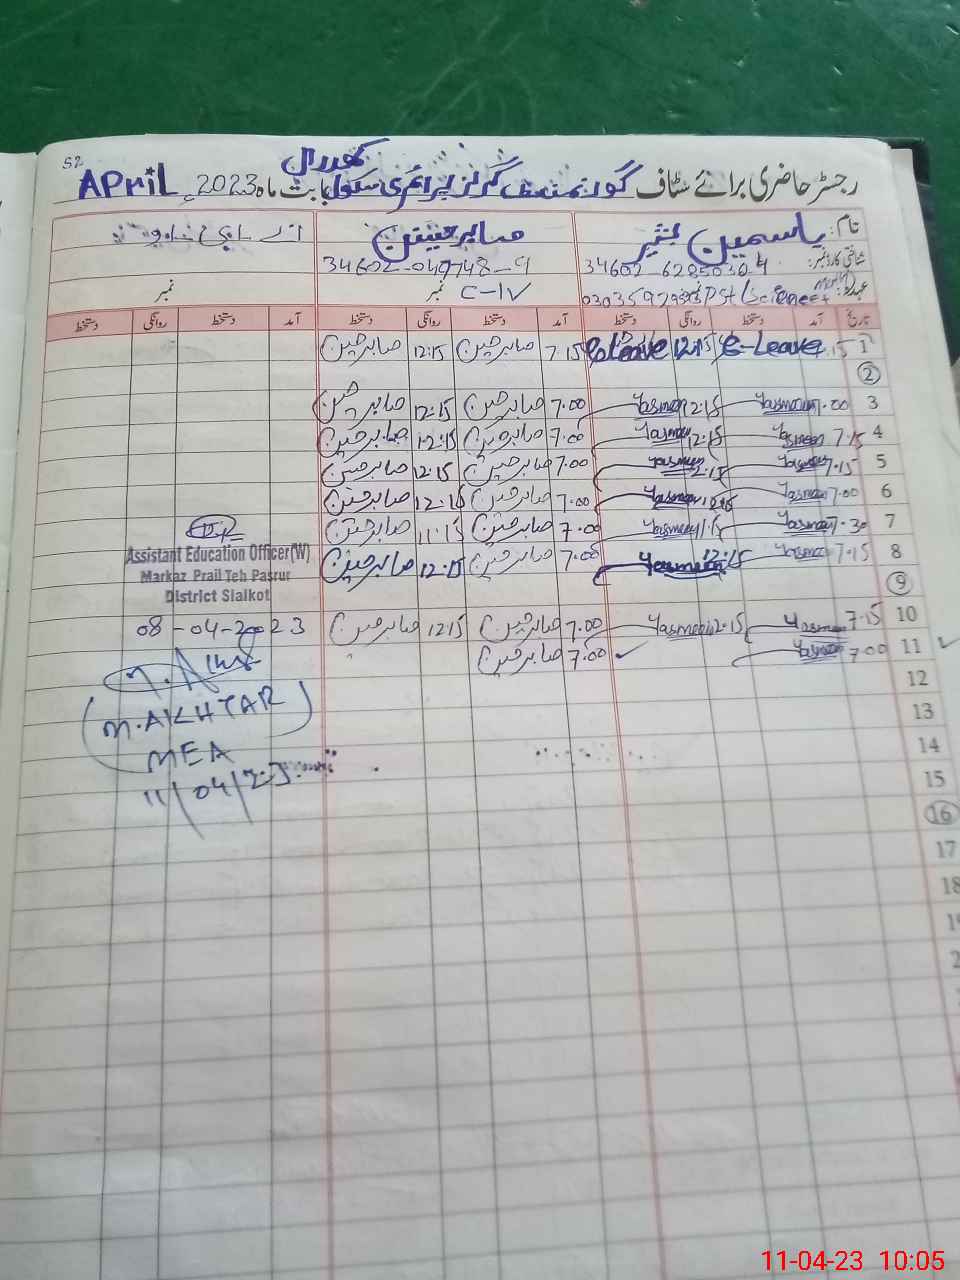 52
رجسٹر حاضری برائے سٹاف گورنمنٹ گرلز پرائمری سکول بابت ماہ APriL 2023ء
نام: یاسمین صابر حسین
شناختی کارڈ نمبر: 34602-6285030-4 34602-040748-9
عہدہ: PST/Science نمبر C-IV نمبر
تاریخ آمد دستخط روانگی دستخط آمد دستخط روانگی دستخط آمد دستخط روانگی دستخط
1 e-Leave 12:15 e-Leave 7:15 صابر حسین 12:15 صابر حسین
2
3 7:00 Yasmeen 12:15 Yasmeen 7:00 صابر حسین 12:15 صابر حسین
4 7:15 Yasmeen 12:15 Yasmeen 7:00 صابر حسین 12:15 صابر حسین
5 7:15 Yasmeen 12:15 Yasmeen 7:00 صابر حسین 12:15 صابر حسین
6 7:00 Yasmeen 12:15 Yasmeen 7:00 صابر حسین 12:15 صابر حسین
7 7:30 Yasmeen 11:15 Yasmeen 7:00 صابر حسین 11:15 صابر حسین
8 7:15 Yasmeen 12:15 Yasmeen 7:00 صابر حسین 12:15 صابر حسین
9
10 7:15 Yasmeen 12:15 Yasmeen 7:00 صابر حسین 12:15 صابر حسین
11 7:00 Yasmeen 7:00 صابر حسین
12
13
14
15
16
17
18
Assistant Education Officer(W)
Markaz Prail Teh Pasrur
District Sialkot
08-04-2023
(M.AKHTAR
MEA
11/04/23
11-04-23 10:05